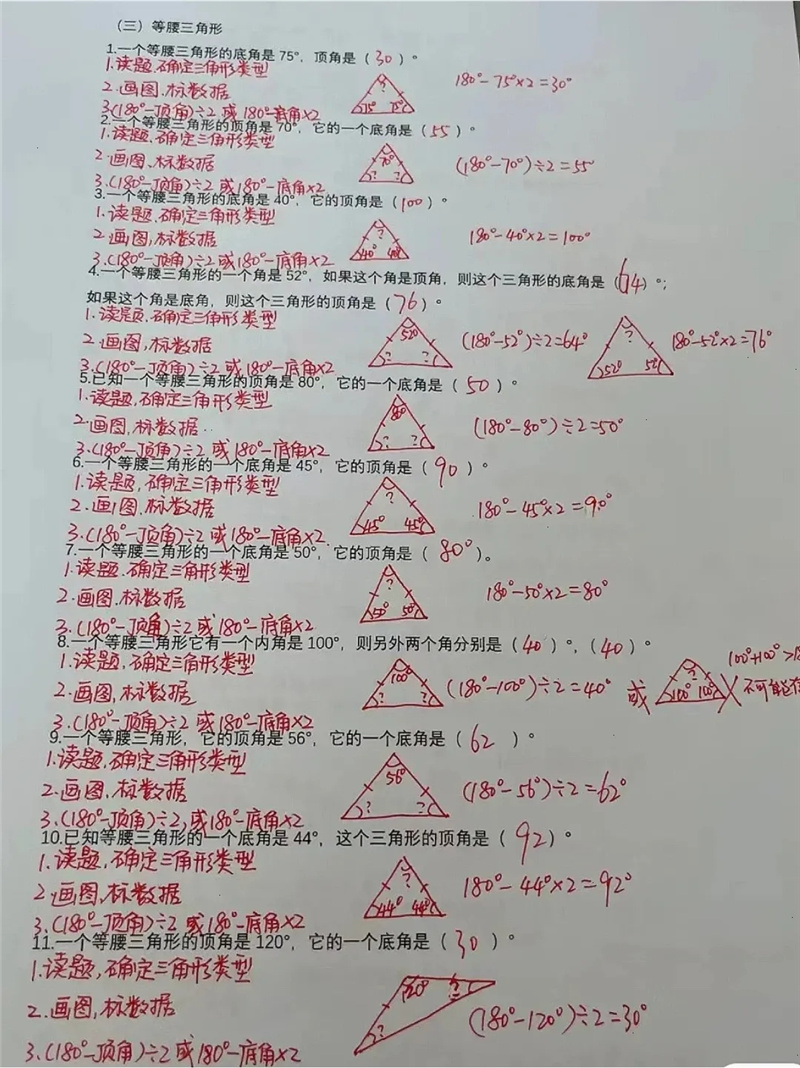 （三）等腰三角形
1.一个等腰三角形的底角是 75°，顶角是（30）°。
1.读题.确定三角形类型
2.画图.标数据
3.(180°-顶角)÷2 或180°-底角×2
? 75° 75°
180°-75°×2=30°
2.一个等腰三角形的顶角是 70°，它的一个底角是（55）°。
1.读题.确定三角形类型
2.画图.标数据
3.(180°-顶角)÷2 或180°-底角×2
70° ? ?
(180°-70°)÷2=55°
3.一个等腰三角形的底角是 40°，它的顶角是（100）°。
1.读题.确定三角形类型
2.画图,标数据
3.(180°-顶角)÷2 或180°-底角×2
? 40° 40°
180°-40°×2=100°
4.一个等腰三角形的一个角是 52°，如果这个角是顶角，则这个三角形的底角是（64）°；
如果这个角是底角，则这个三角形的顶角是（76）°。
1.读题.确定三角形类型
2.画图,标数据
3.(180°-顶角)÷2 或180°-底角×2
52° ? ?
(180°-52°)÷2=64°
? 52° 52°
180°-52°×2=76°
5.已知一个等腰三角形的顶角是 80°，它的一个底角是（50）°。
1.读题,确定三角形类型
2.画图,标数据
3.(180°-顶角)÷2 或180°-底角×2
80° ? ?
(180°-80°)÷2=50°
6.一个等腰三角形的一个底角是 45°，它的顶角是（90）°。
1.读题.确定三角形类型
2.画图,标数据
3.(180°-顶角)÷2 或180°-底角×2
? 45° 45°
180°-45°×2=90°
7.一个等腰三角形的一个底角是 50°，它的顶角是（80°）。
1.读题.确定三角形类型
2.画图.标数据
3.(180°-顶角)÷2 或180°-底角×2
? 50° 50°
180°-50°×2=80°
8.一个等腰三角形它有一个内角是 100°，则另外两个角分别是（40）°，（40）°。
1.读题.确定三角形类型
2.画图,标数据
3.(180°-顶角)÷2 或180°-底角×2
100° ? ?
(180°-100°)÷2=40° 或
? 100° 100°
100°+100°>
不可能
9.一个等腰三角形，它的顶角是 56°，它的一个底角是（62）°。
1.读题.确定三角形类型
2.画图,标数据
3.(180°-顶角)÷2,或180°-底角×2
56° ? ?
(180°-56°)÷2=62°
10.已知等腰三角形的一个底角是 44°，这个三角形的顶角是（92）°。
1.读题,确定三角形类型
2.画图,标数据
3.(180°-顶角)÷2 或180°-底角×2
? 44° 44°
180°-44°×2=92°
11.一个等腰三角形的顶角是 120°，它的一个底角是（30）°。
1.读题,确定三角形类型
2.画图,标数据
3.(180°-顶角)÷2 或180°-底角×2
120° ? ?
(180°-120°)÷2=30°